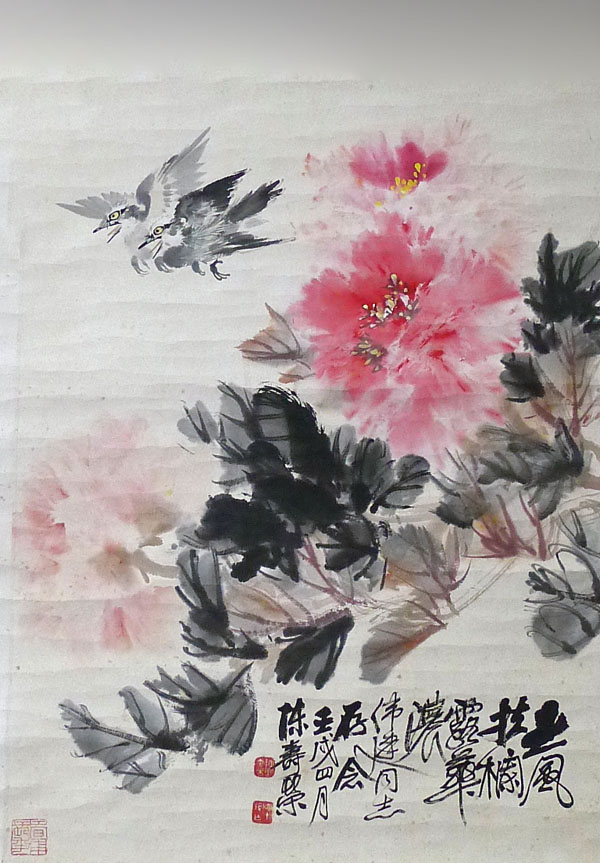 春風
拂檻
露華
濃
伟同志
存念
壬戌四月
陈壽榮